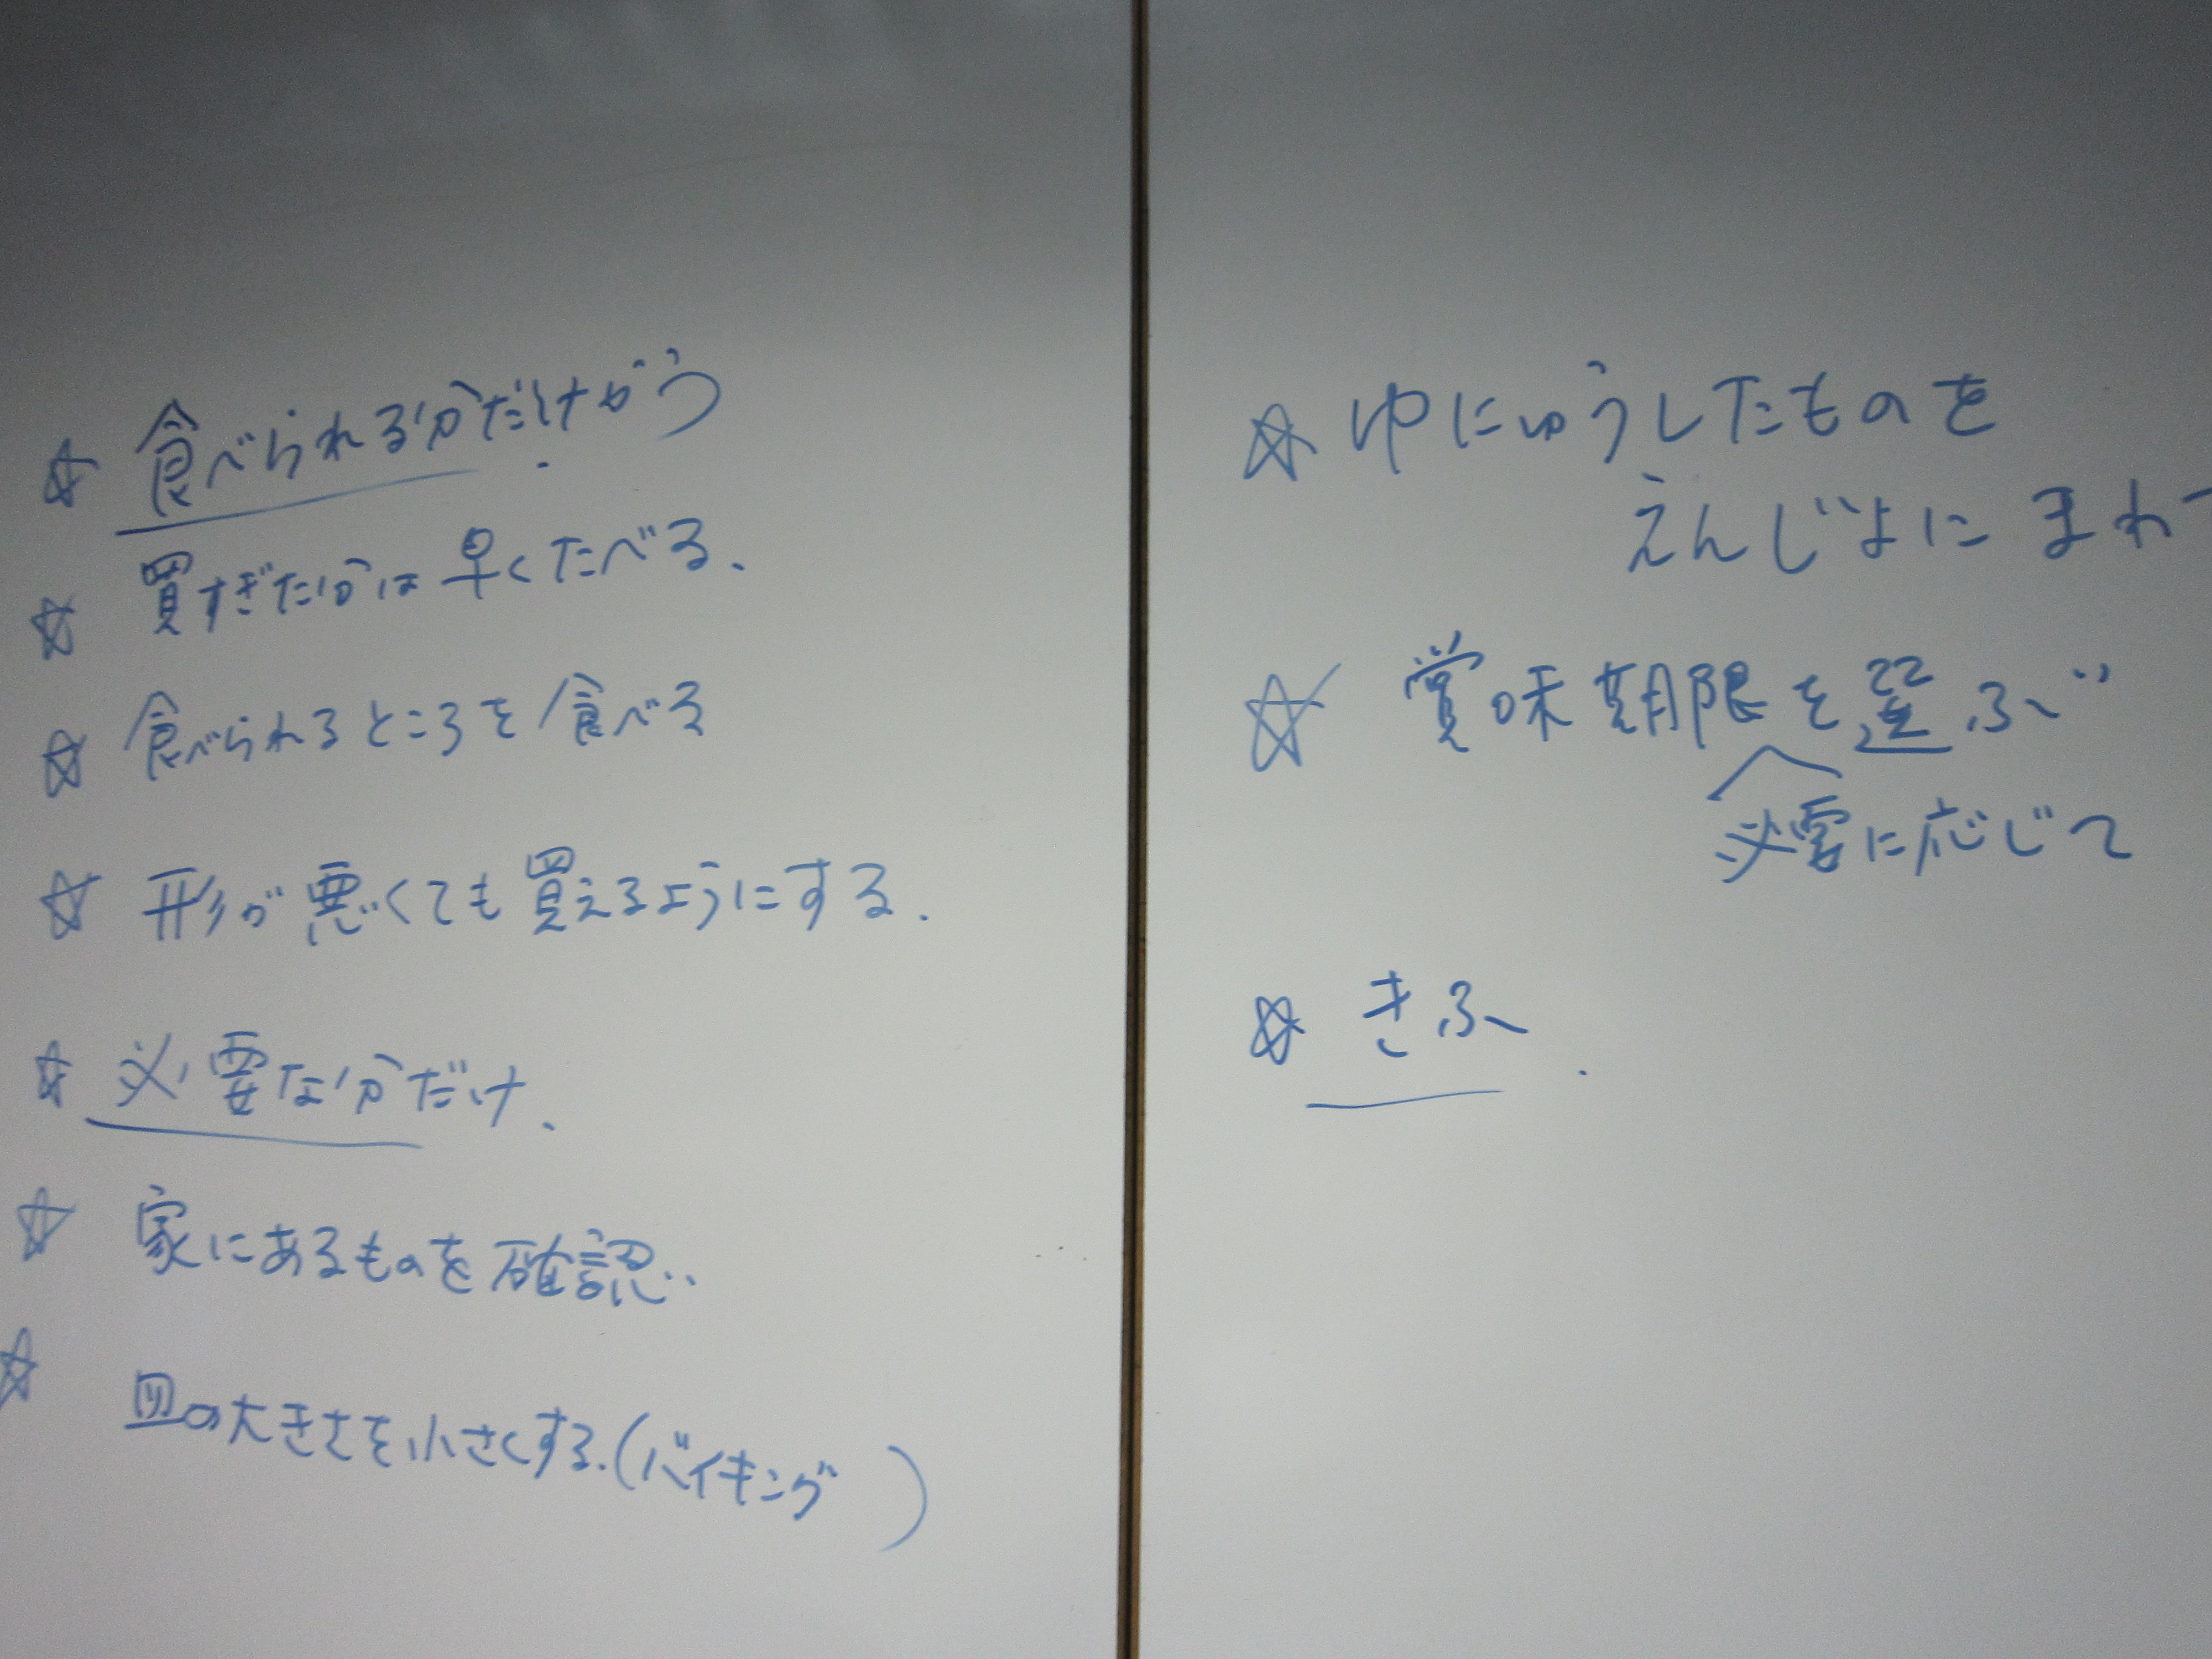 ☆ 食べられる分だけかう
☆ 買すぎた分は早くたべる、
☆ 食べられるところを食べる
☆ 形が悪くても買えるようにする.
☆ 必要な分だけ、
☆ 家にあるものを確認..
☆ 皿の大きさを小さくする.(バイキング)
☆ ゆにゅうしたものを
えんじょにまわ
☆ 賞味期限を選ぶ
必要に応じて
☆ きふ.